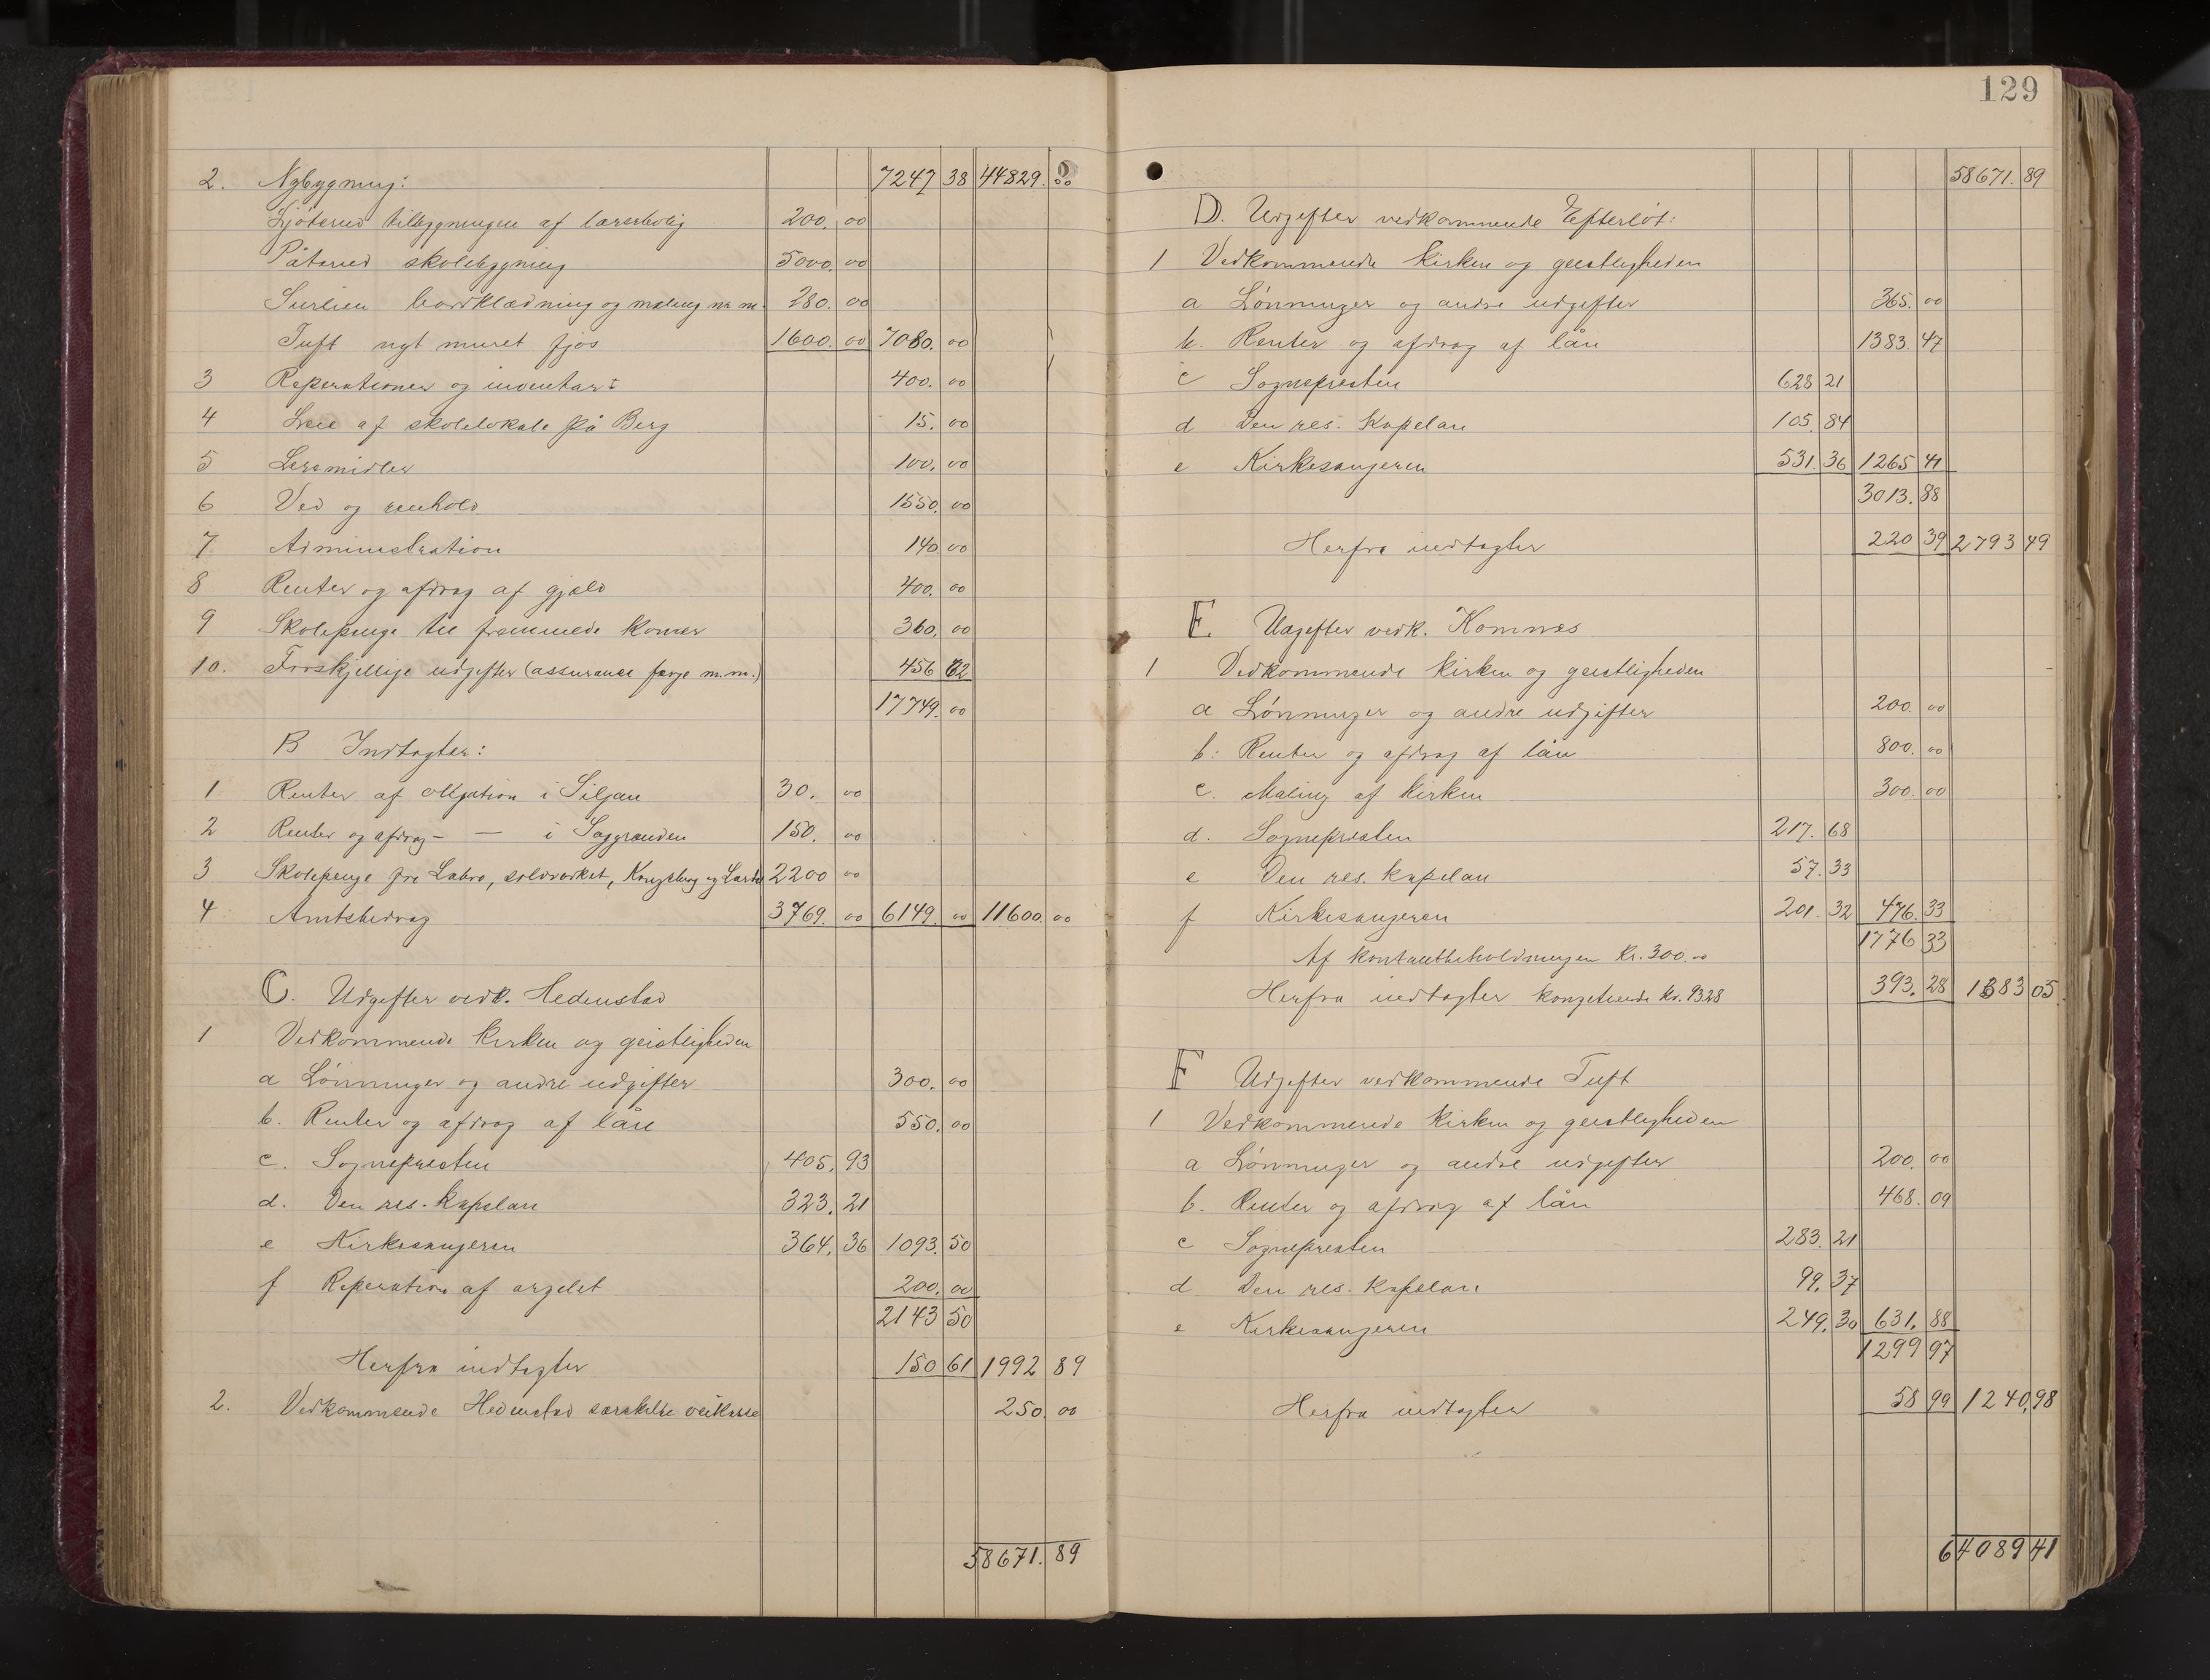 2. Nybygning: 7247 38 44829. 00
tilbygningen af lærerbolig 200. 00
Påterud skolebygning 5000. 00
bordklædning og maling m. m. 280. 00
Tuft nyt muret fjøs 1600. 00 7080. 00
3 Reperationer og inventar: 400. 00
4 Leie af skolelokale på Berg 15. 00
5 Læremidler 100. 00
6 Ved og renhold 1550. 00
7 Administration 140. 00
8 Renter og afdrag af gjæld 400. 00
9 Skolepenge til fremmede komer 360. 00
10. Forskjellige udgifter (assurance færge m.m.) 456 62
17749. 00
B Indtægter:
1 Renter af obligation i Siljan 30. 00
2 Renter og afdrag - — i Saggrenden 150. 00
3 Skolepenge fra Labro, sølvverket, Kongsberg og 2200 00
4 Amtsbidrag 3769. 00 6149. 00 11600. 00
C. Udgifter vedk. Hedenstad
1 Vedkommende kirken og geistligheden
a Lønninger og andre udgifter 300. 00
b. Renter og afdrag af lån 550. 00
c. Sognepresten 405. 93
d. Den res. kapelan 323. 21
e Kirkesangeren 364. 36 1093. 50
f Reperation af orgelet 200. 00
2143 50
Herfra indtægter 150 61 1992 89
2. Vedkommende Hedenstad særskilte veikasse 250. 00
58671. 89
129
58671. 89
D. Udgifter vedkommende Efterløt:
1 Vedkommende kirken og geistligheden
a Lønninger og andre udgifter 365. 00
b. Renter og afdrag af lån 1383. 47
c Sognepresten 628 21
d Den res. Kapelan 105. 84
e Kirkesangeren 531. 36 1265 41
3013. 88
Herfra indtægter 220 39 2793 49
E. Udgifter vedk. Komnes
1 Vedkommende kirken og geistligheden
a Lønninger og andre udgifter 200. 00
b: Renter og afdrag af lån 800. 00
c. Maling af kirken 300. 00
d. Sognepresten 217. 68
e Den res. kapelan 57. 33
f Kirkesangeren 201. 32 476. 33
1776 33
Af kontantbeholdningen kr. 300.00
Herfra indtægter kongetiende kr. 93.28 393. 28 1383 05
F Udgifter vedkommende Tuft
1 Vedkommende kirken og geistligheden
a Lønninger og andre udgifter 200. 00
b. Renter og afdrag af lån 468. 09
c Sognepresten 283. 21
d Den res. kapelan 99. 37
e Kirkesangeren 249. 30 631. 88
1299 97
Herfra indtægter 58 99 1240. 98
64089 41